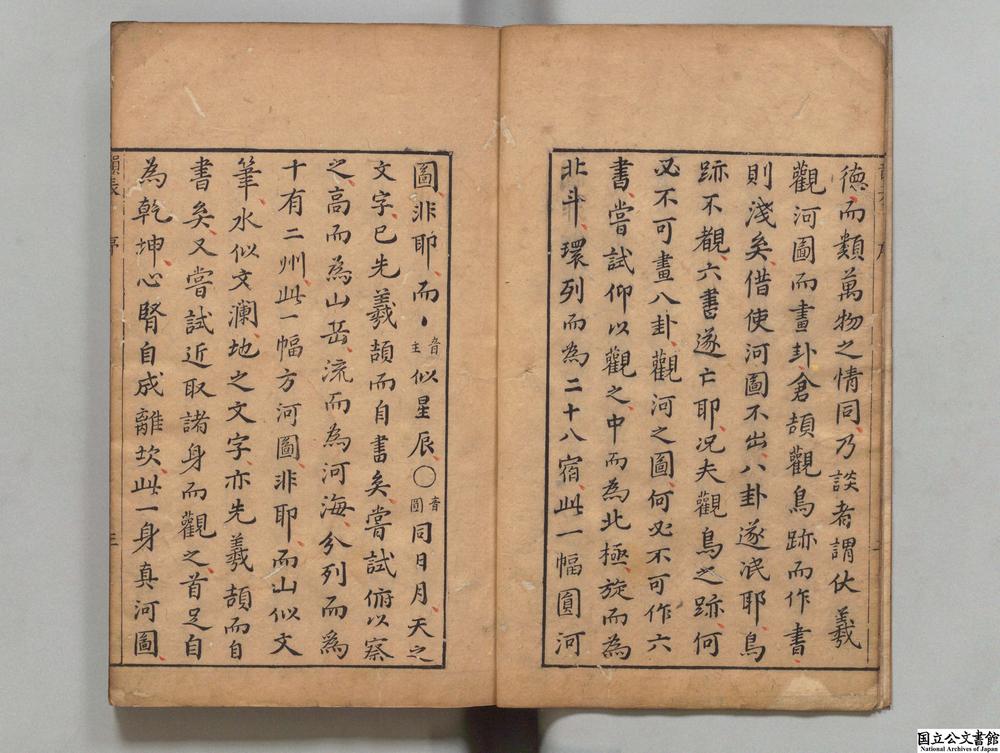 德而類萬物之情同乃談者謂伏羲
觀河圖而畫卦倉頡觀鳥跡而作書
則淺矣借使河圖不出八卦遂泯耶鳥
跡不覩六書遂亡耶况夫觀鳥之跡何
必不可畫八卦觀河之圖何必不可作六
書嘗試仰以觀之中而為北極旋而為
北斗環列而為二十八宿此一幅圓河
圖非耶而丶音主似星辰〇音圓同日月天之
文字已先羲頡而自書矣嘗試俯以察
之高而為山岳流而為河海分列而為
十有二州此一幅方河圖非耶而山似文
筆水似文瀾地之文字亦先羲頡而自
書矣又嘗試近取諸身而觀之首足自
為乾坤心腎自成離坎此一身真河圖
韻表 序 三
国立公文書館
National Archives of Japan